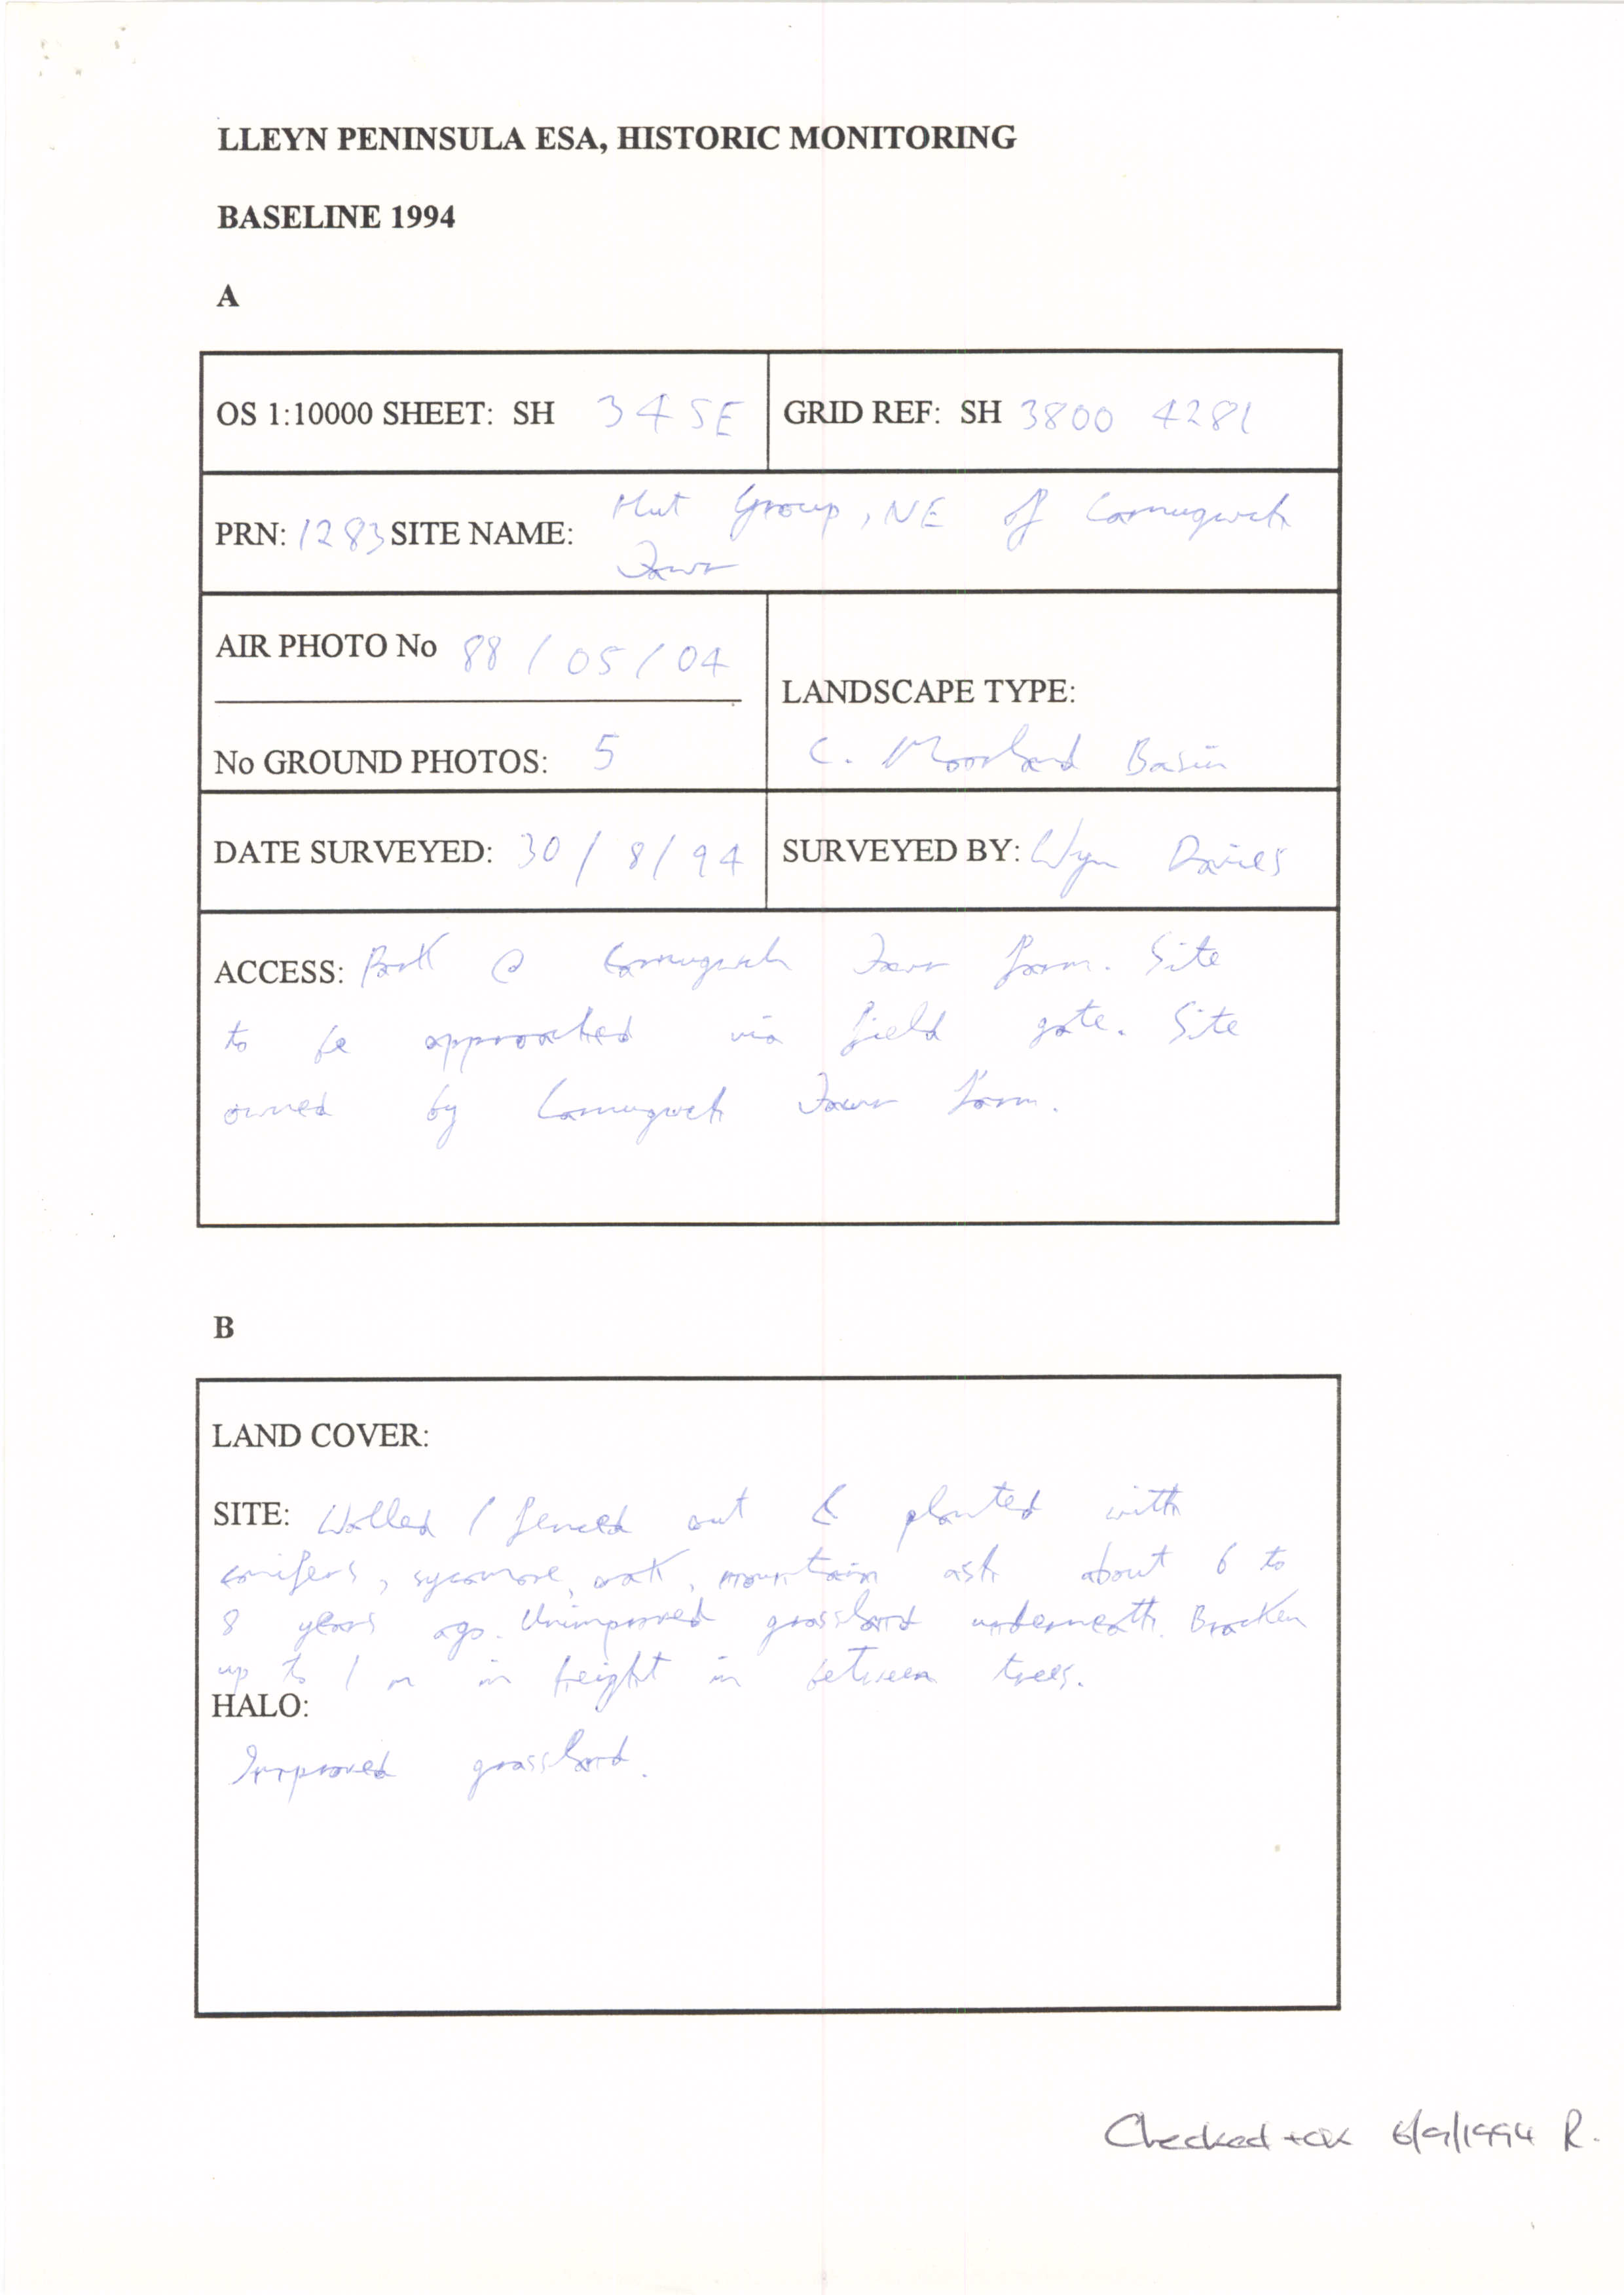 LLEYN PENINSULA ESA, HISTORIC MONITORING
BASELINE 1994
A
OS 1:10000 SHEET: SH 34 SE
GRID REF: SH 3800 4281
PRN: 1283 SITE NAME: Hut Group, NE of Carnugwch
Fawr
AIR PHOTO No 88/05/04
No GROUND PHOTOS: 5
LANDSCAPE TYPE:
C. Moorland Basin
DATE SURVEYED: 30/8/94
SURVEYED BY: Wyn Davies
ACCESS: Park @ Carnugwch Fawr farm. Site
to be approached via field gate. Site
owned by Carnugwch Fawr Farm.
B
LAND COVER:
SITE: Walled / fenced out & planted with
conifers, sycamore, oak, mountain ash about 6 to
8 years ago. Unimproved grassland underneath. Bracken
up to 1 m in height in between trees.
HALO:
Improved grassland.
Checked + OK 6/9/1994 R.